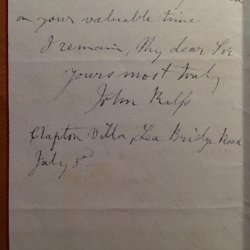 on your valuable time
I remain, My dear Sir
yours most truly
John Ralfs
Clapton Villa, Lea Bridge Road
July 3rd